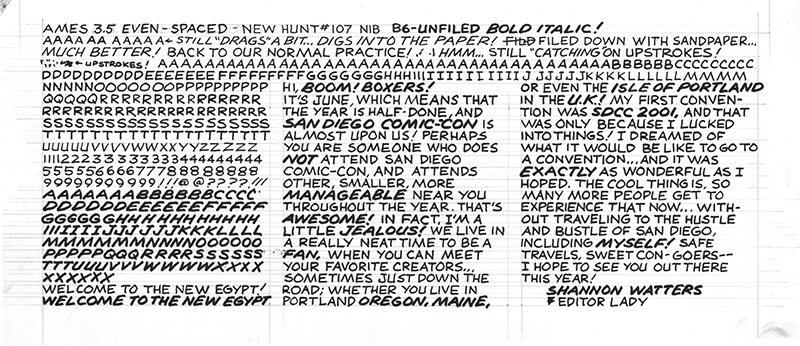 AMES 3.5 EVEN-SPACED-NEW HUNT #107 NIB B6-UNFILED BOLD ITALIC!
AAAAA AAAAA← STILL "DRAGS" A BIT... DIGS INTO THE PAPER! FILED DOWN WITH SANDPAPER...
MUCH BETTER! BACK TO OUR NORMAL PRACTICE! HMM... STILL "CATCHING" ON UPSTROKES!
← UPSTROKES! AAAAAAAAAAAAAAAAAAAAAAAAAAAAAAAAAAAAAABBBBBBCCCCCCCCCC
DDDDDDDDDDDEEEEEEEFFFFFFFFFFGGGGGGGHHHIIIIIIIIIIIIIIJJJJJJJKKKKLLLLLLMMMM
NNNNNOOOOOOOPPPPPPPPPP
QQQQQRRRRRRRRRRRRRRR
RRRRRRRRRRRRRRRRRRRRR
SSSSSSSSSSSSSSSSSSSSSSS
TTTTTTTTTTTTTTTTTTTTTTTT
UUUUUVVVVVWWXXYYZZZZZ
1111222333333334444444444
5555556666777788888888
999999999999!//!@@????.!!!
AAAAAAABBBBBBCCCC
DDDDDDDEEEEEEFFFFFF
GGGGGGHHHHHHHHHHH
IIIIIIIIJJJJJJJJKKKLLLL
MMMMMMMNNNNOOOOOO
PPPPPPQQQRRRRSSSSSS
TTTUUUVVVVWWWWXXXX
XXXXXXX
WELCOME TO THE NEW EGYPT!
WELCOME TO THE NEW EGYPT
HI, BOOM! BOXERS!
IT'S JUNE, WHICH MEANS THAT
THE YEAR IS HALF-DONE, AND
SAN DIEGO COMIC-CON IS
ALMOST UPON US! PERHAPS
YOU ARE SOMEONE WHO DOES
NOT ATTEND SAN DIEGO
COMIC-CON, AND ATTENDS
OTHER, SMALLER, MORE
MANAGEABLE NEAR YOU
THROUGHOUT THE YEAR. THAT'S
AWESOME! IN FACT, I'M A
LITTLE JEALOUS! WE LIVE IN
A REALLY NEAT TIME TO BE A
FAN, WHEN YOU CAN MEET
YOUR FAVORITE CREATORS...
SOMETIMES JUST DOWN THE
ROAD; WHETHER YOU LIVE IN
PORTLAND OREGON, MAINE,
OR EVEN THE ISLE OF PORTLAND
IN THE U.K.! MY FIRST CONVEN-
TION WAS SDCC 2001, AND THAT
WAS ONLY BECAUSE I LUCKED
INTO THINGS! I DREAMED OF
WHAT IT WOULD BE LIKE TO GO TO
A CONVENTION... AND IT WAS
EXACTLY AS WONDERFUL AS I
HOPED. THE COOL THING IS, SO
MANY MORE PEOPLE GET TO
EXPERIENCE THAT NOW... WITH-
OUT TRAVELING TO THE HUSTLE
AND BUSTLE OF SAN DIEGO,
INCLUDING MYSELF! SAFE
TRAVELS, SWEET CON-GOERS--
I HOPE TO SEE YOU OUT THERE
THIS YEAR!
SHANNON WATTERS
EDITOR LADY